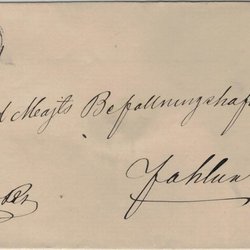 d Meajts Befallningshaf
Fahlun